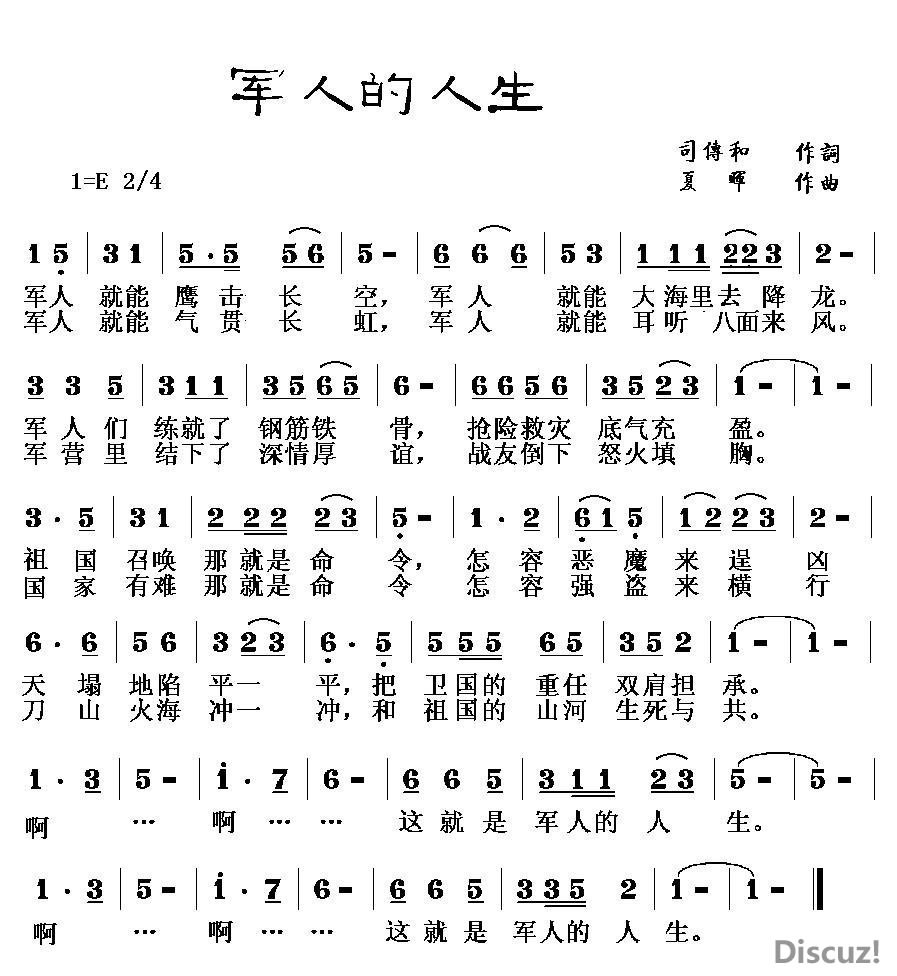 军人的人生
司傳和 作詞
1=E 2/4
夏暉 作曲
1 5 | 3 1 | 5·5 5 6 | 5 - | 6 6 6 | 5 3 | 1 1 1 2 2 3 | 2 - |
军人 就能 鹰击长 空, 军人 就能 大海里去降 龙。
军人 就能 气贯长 虹, 军人 就能 耳听八面来 风。
3 3 5 | 3 1 1 | 3 5 6 5 | 6 - | 6 6 5 6 | 3 5 2 3 | 1 - | 1 - |
军人们 练就了 钢筋铁 骨, 抢险救灾 底气充 盈。
军营里 结下了 深情厚 谊, 战友倒下 怒火填 胸。
3· 5 | 3 1 | 2 2 2 2 3 | 5 - | 1· 2 | 6 1 5 | 1 2 2 3 | 2 - |
祖国 召唤 那就是命 令, 怎容 恶魔 来逞 凶
国家 有难 那就是命 令 怎容 强盗 来横 行
6· 6 | 5 6 | 3 2 3 | 6· 5 | 5 5 5 6 5 | 3 5 2 | 1 - | 1 - |
天塌 地陷 平一 平,把 卫国的重任 双肩担 承。
刀山 火海 冲一 冲,和 祖国的山河 生死与 共。
1· 3 | 5 - | i· 7 | 6 - | 6 6 5 | 3 1 1 2 3 | 5 - | 5 - |
啊 … 啊 … … 这就是 军人的人 生。
1· 3 | 5 - | i· 7 | 6 - | 6 6 5 | 3 3 5 2 | 1 - | 1 - ‖
啊 … 啊 … … 这就是 军人的人 生。
Discuz!